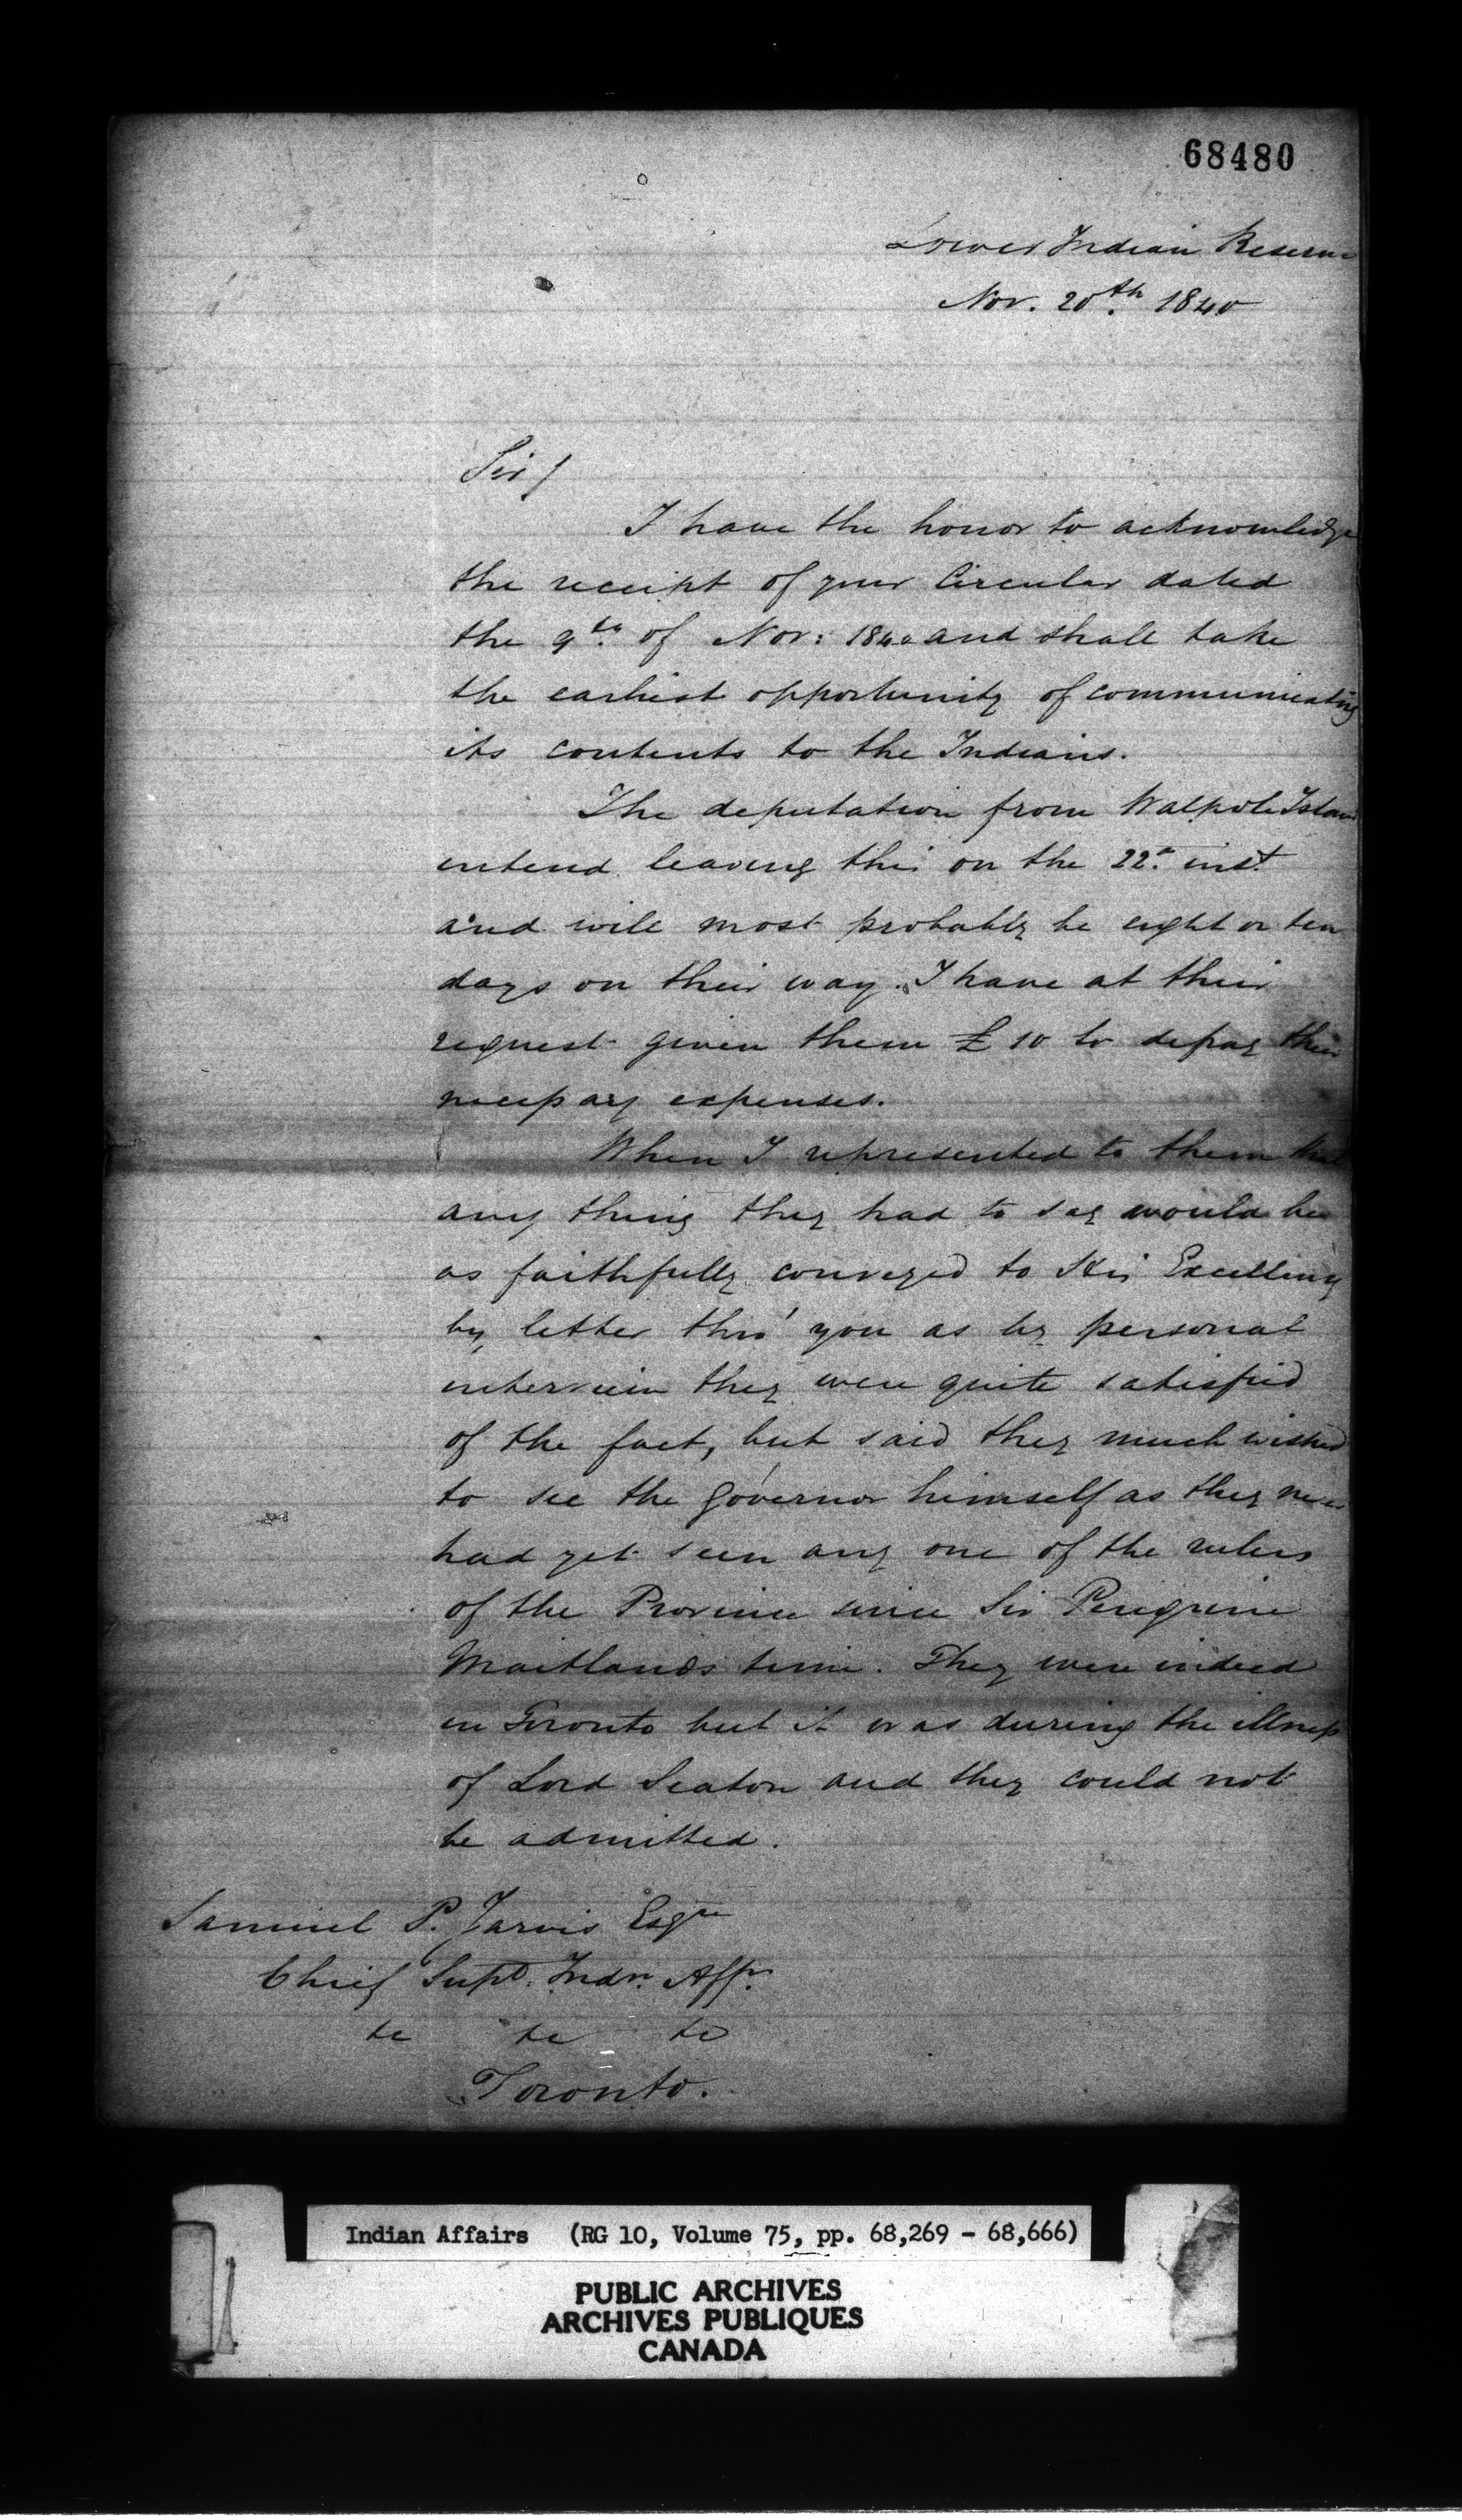 68480
Lower Indian Reserve
Nov. 20th 1840
Sir/
I have the honor to acknowledge
the receipt of your Circular dated
the 9th of Nov: 1840 and shall take
the earliest opportunity of communicating
its contents to the Indians.
The deputation from Walpole Island
intend leaving this on the 22d inst.
and will most probably be eight or ten
days on their way. I have at their
request given them £10 to defray their
necessary expenses.
When I represented to them that
any thing they had to say would be
as faithfully conveyed to His Excellency
by letter thro' you as by personal
interview they were quite satisfied
of the fact, but said they much wished
to see the Governor himself as they never
had yet seen any one of the rulers
of the Province since Sir Peregrine
Maitlands time. They were indeed
in Toronto but it was during the illness
of Lord Seaton and they could not
be admitted.
Samuel P. Jarvis Esqre
Chief Supt. Indn. Affrs.
&c &c &c
Toronto.
Indian Affairs (RG 10, Volume 75, pp. 68,269 - 68,666)
PUBLIC ARCHIVES
ARCHIVES PUBLIQUES
CANADA